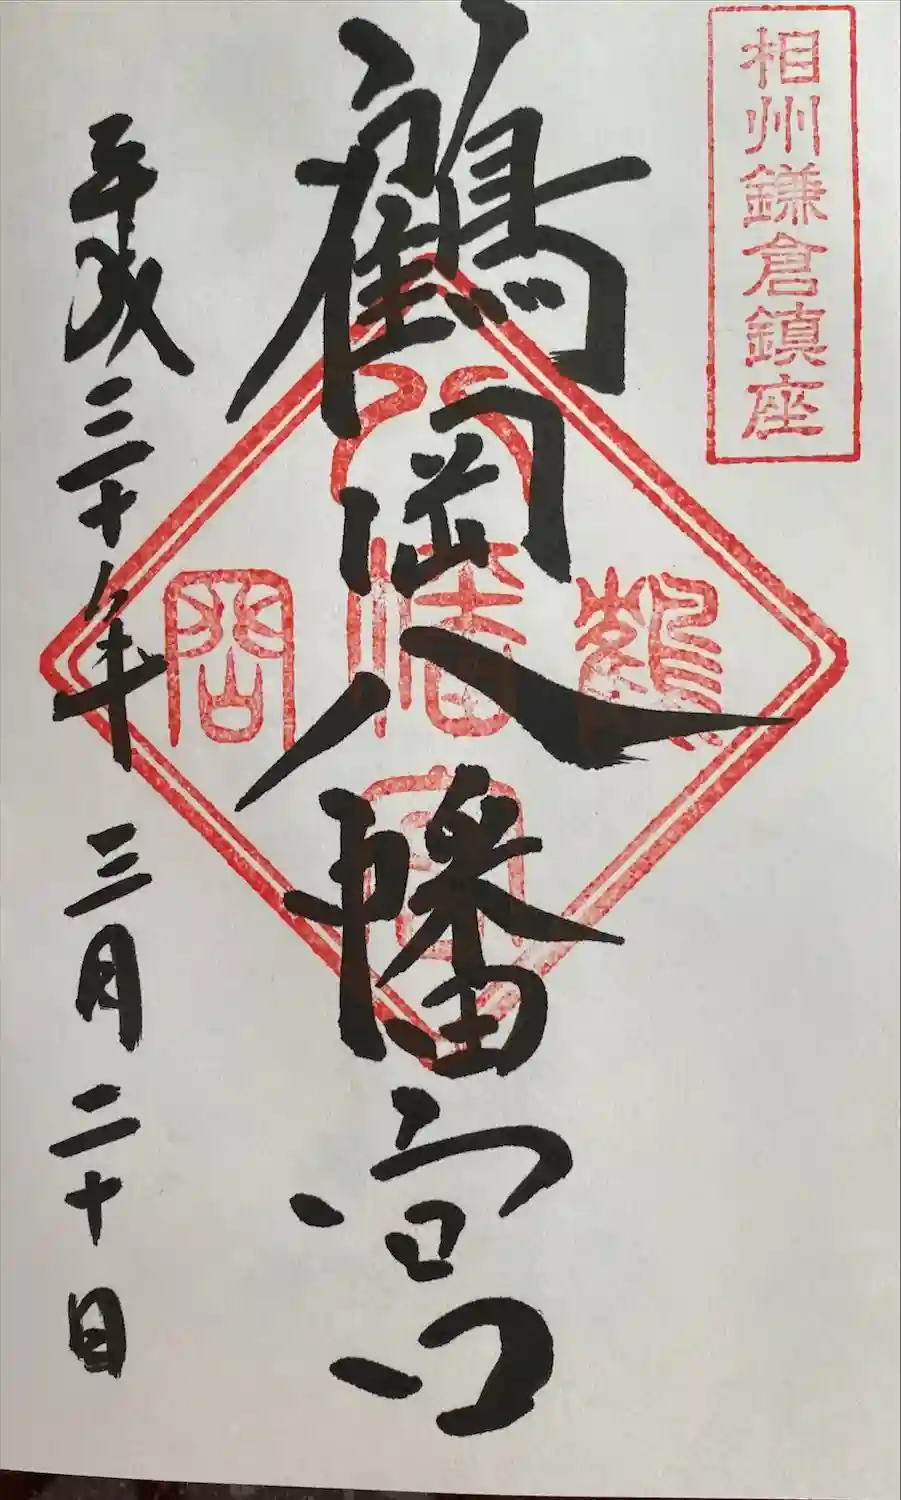 相州鎌倉鎮座
鶴岡八幡宮
鶴岡八幡宮
平成三十年三月二十日